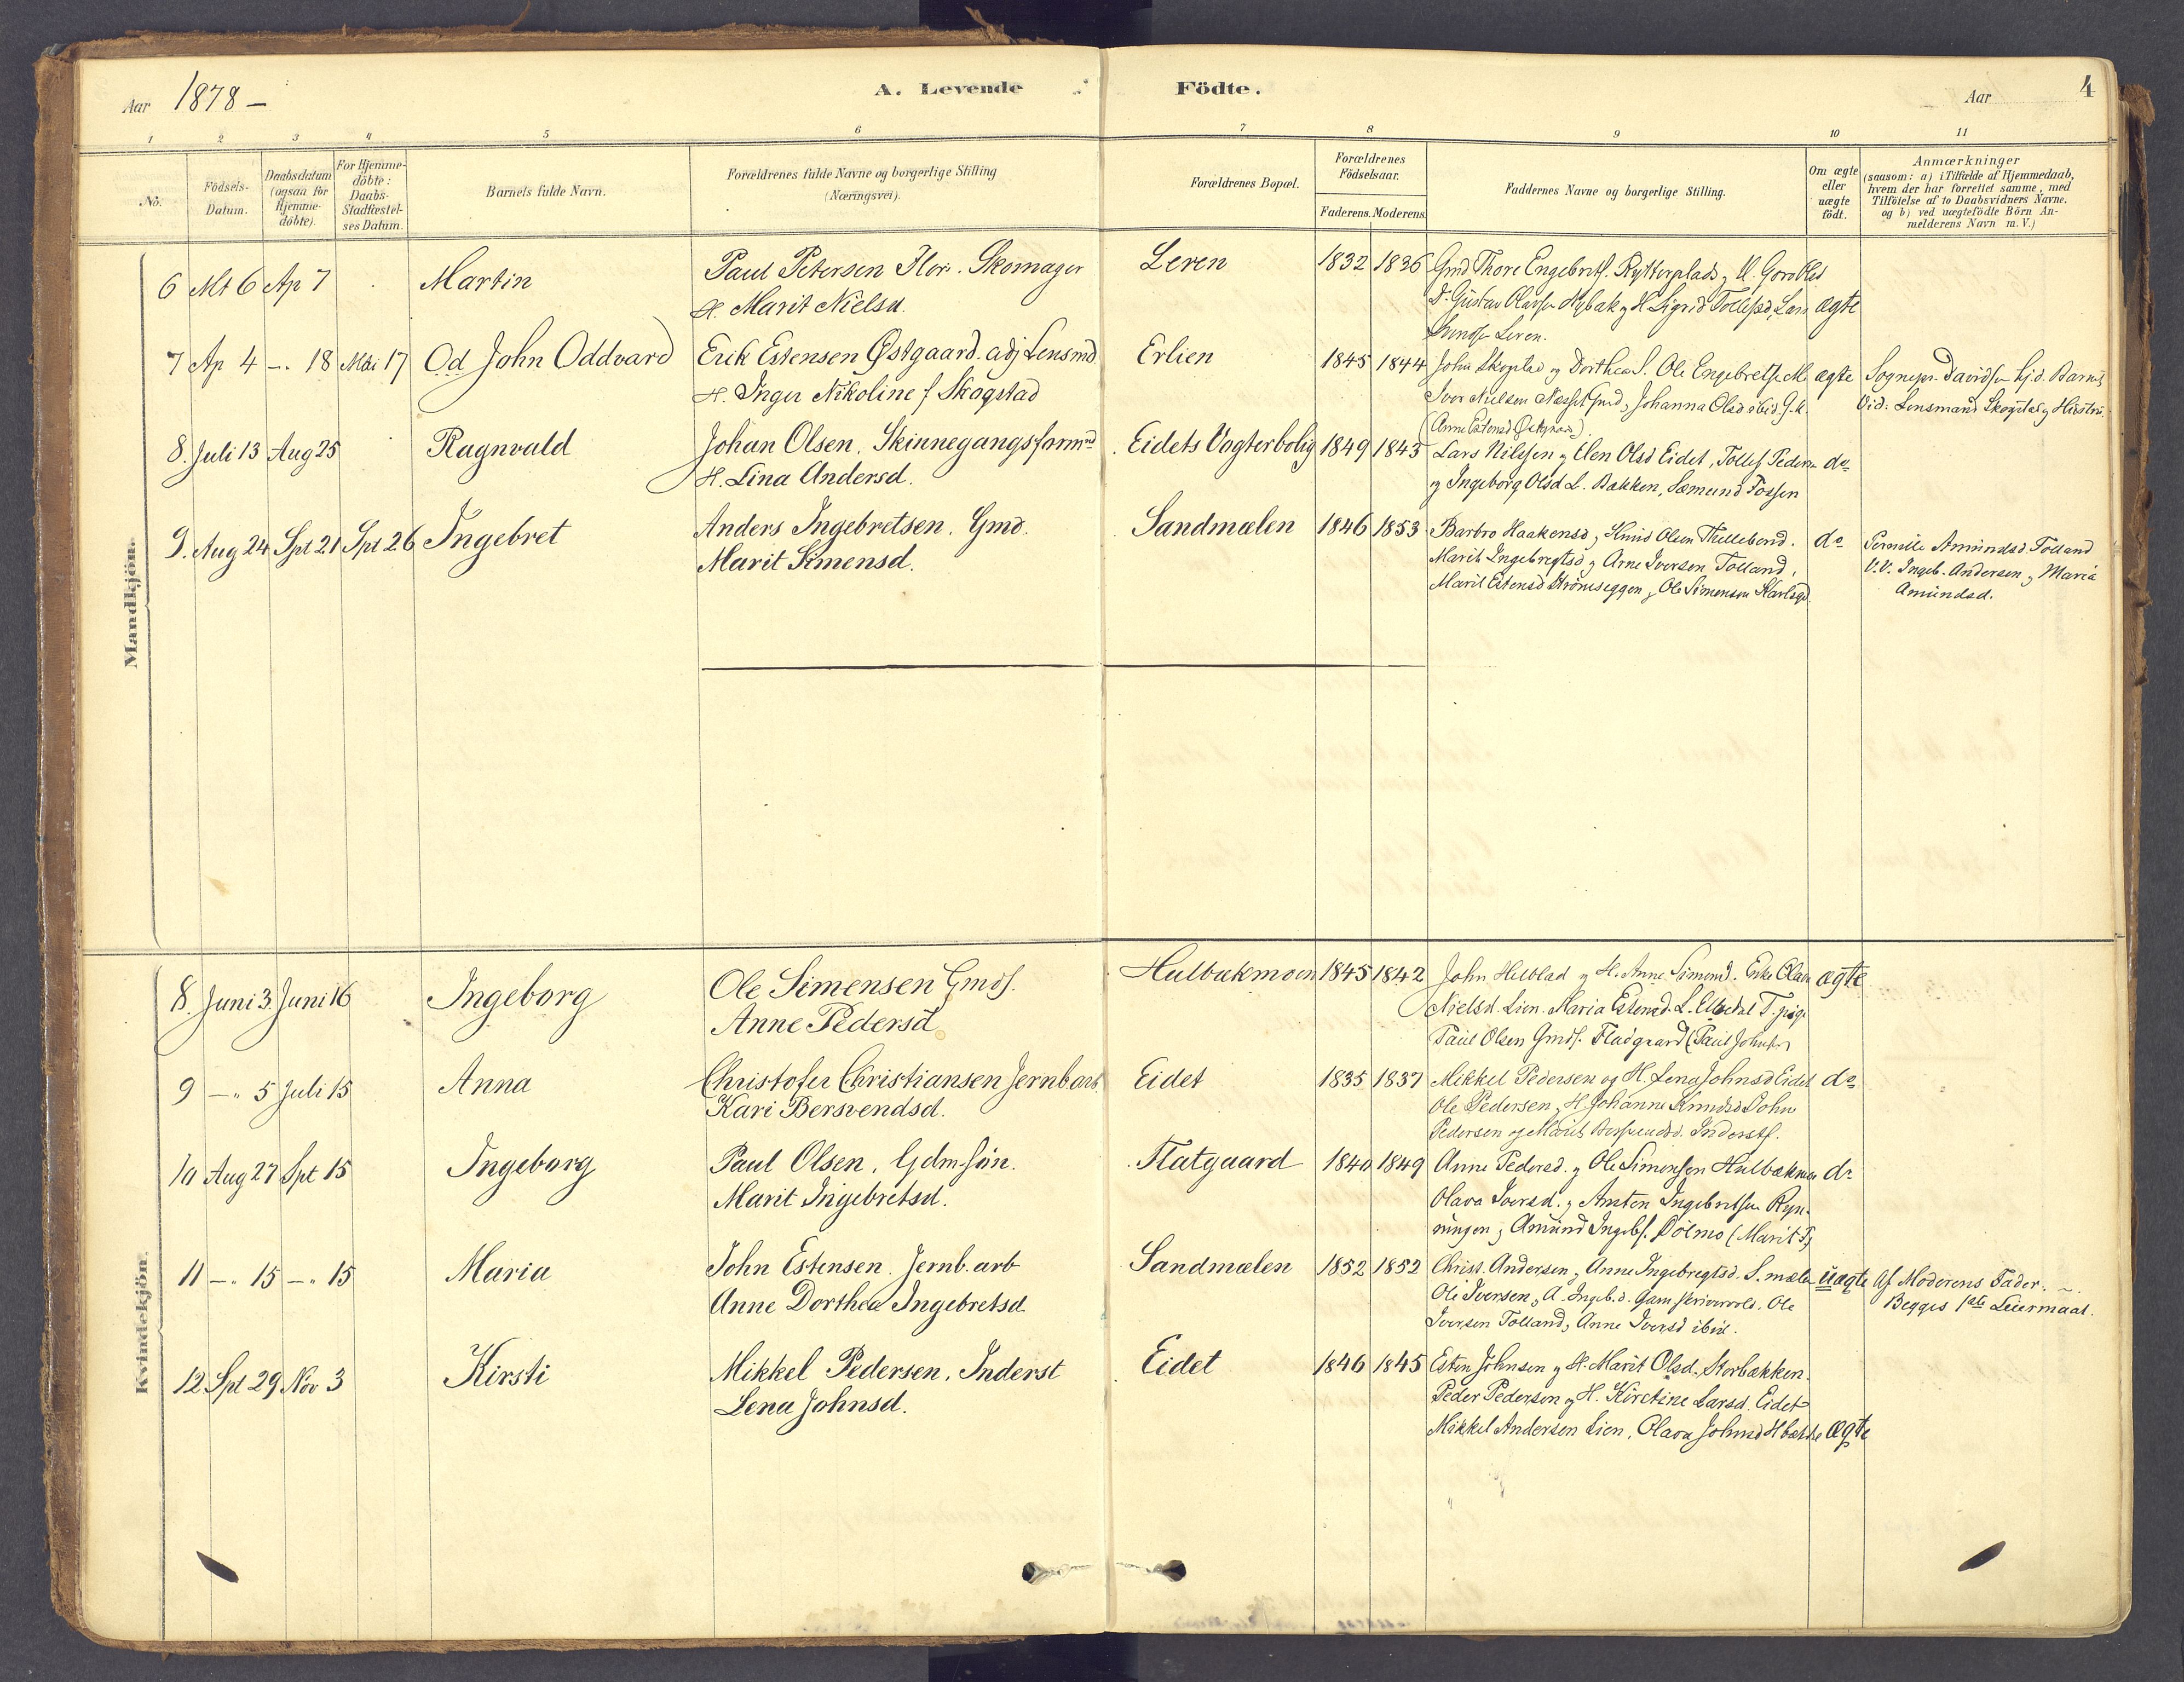 Aar 1878 —
A. Levende Födte.
Aar 4
1 2 3 4 5 6 7 8 9 10 11
No.
Födsels-
Datum.
Daabsdatum
(ogsaa for
Hjemme-
döbte).
For Hjemme-
döbte:
Daabs-
Stadfæstel-
ses Datum.
Barnets fulde Navn.
Forældrenes fulde Navne og borgerlige Stilling
(Næringsvei).
Forældrenes Bopæl.
Forældrenes
Födselsaar.
Faderens. Moderens.
Faddernes Navne og borgerlige Stilling.
Om ægte
eller
uægte
födt.
Anmærkninger
(saasom: a) i Tilfælde af Hjemmedaab,
hvem der har forrettet samme, med
Tilföielse af to Daabsvidners Navne.
og b) ved uægtefödte Börn An-
melderens Navn m. V.)
Mandkjön.
6 Mt 6 Ap 7 Martin
Paul Petersen Flor. Skomager
H. Marit Nielsd.
Leren 1832 1836
Gmd Thore Engebretf. Rytterplads, H. Goro Olsd
D. Gustav Olavsen Nybak og H Sigrid Tollefsd, Lars
Leren.
ægte
7 Ap 4 -. 18 Mai 17 Od John Oddvard
Erik Estensen Østgaard. adj Lensmd
H. Inger Nikoline f Skogstad
Erlien 1845 1844
John Skogstad og Dorthea S. Ole Engebretsen
Iver Nielsen Næsset Gmd, Johanna Olsd ibid.
(Anne Estensd Østgaard)
ægte
Sognepr. Davidsen hjd. Barnet
Vid: Lensmand Skogstad og Hustru.
8. Juli 13 Aug 25 Ragnvald
Johan Olsen. Skinnegangsformd
H. Lina Andersd.
Eidets Vogterbolig 1849 1845
Lars Nilssen og Elen Olsd Eidet, Tollef Pedersen
og Ingeborg Olsd L. Bakken, Sæmund Fossen
do
9. Aug 24 Spt 21 Spt 26 Ingebret
Anders Ingebretsen. Gmd.
Marit Simensd.
Sandmælen 1846 1853
Barbro Haakensd, Knud Olsen
Marit Ingebregtsd og Arne Iversen Tolland,
Marit Estensd Strømseggen, Ole Simensen
do
Pernille Amundsd. Tolland
V.V. Ingeb. Andersen og Maria
Amundsd.
Kvindekjön.
8. Juni 3. Juni 16 Ingeborg
Ole Simensen Gmdf.
Anne Pedersd
Hulbækmoen 1845 1842
John Hulblad og H. Anne Simensd. Enke Olava
Nielsd. Lien. Maria Estensd. T. pige
Paul Olsen Gmdf. Fladgaard (Paul Johnsen
ægte
9 -" 5 Juli 15 Anna
Christofer Christiansen Jernb arb.
Kari Bersvendsd.
Eidet 1835 1837
Mikkel Pedersen og H. Lena Johnsd Eidet
Ole Pedersen, H. Johanne Knudsd John
Pedersen og Marit Bersvendsd. Inderstf.
do
10 Aug 27 Spt 15 Ingeborg
Paul Olsen. Gdmsøn.
Marit Ingebretsd.
Flatgaard 1840 1849
Anne Pedersd. og Ole Simensen Hulbækmoen
Olava Iversd. og Amten Ingebretsen Ryn-
ningen, Amund Ingebf. Dölmo (Marit P)
do
11 -" 15 -" 15 Maria
John Estensen. Jernb. arb
Anne Dorthea Ingebretsd
Sandmælen 1852 1852
Christ. Andersen, Anne Ingebregtsd. S. mælen
Ole Iversen, A. Ingeb.d. Ole
Iversen Tolland, Anne Iversd ibid.
uægte
Af Moderens Fader. -
Begges 1ste Leiermaal.
12 Spt 29 Nov 3 Kirsti
Mikkel Pedersen. Inderst
Lena Johnsd.
Eidet 1846 1845
Esten Johnsen og H. Marit Olsd. Storbækken.
Peder Pedersen og H. Kirstine Larsd. Eidet
Mikkel Andersen Lien. Olava Johnsd
ægte